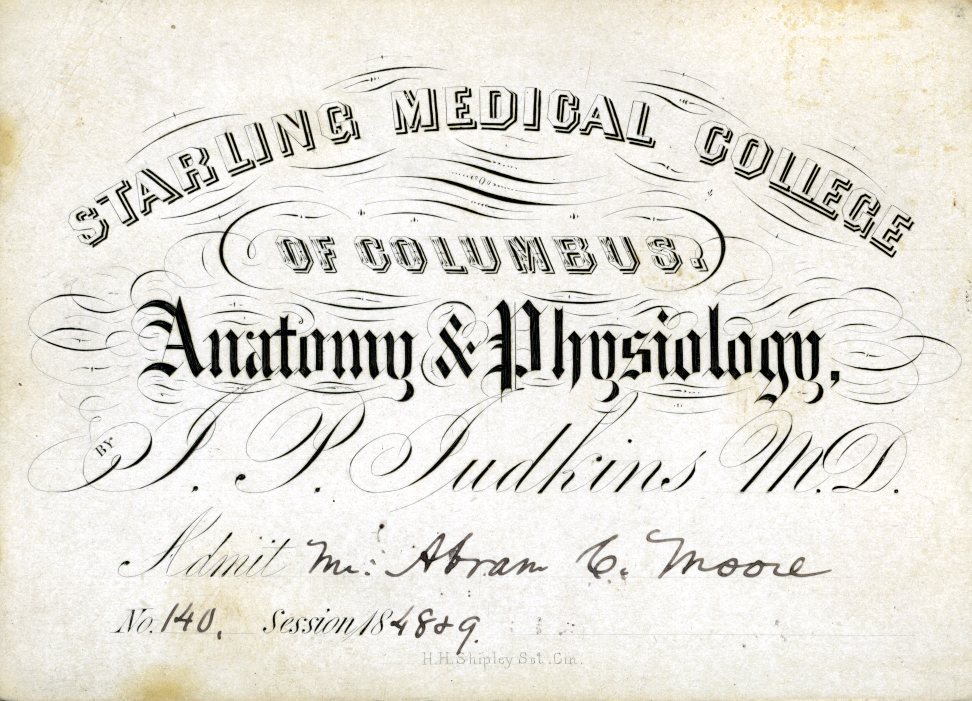 STARLING MEDICAL COLLEGE
OF COLUMBUS.
Anatomy & Physiology,
BY J. P. Judkins M.D.
Admit Mr. Abram C. Moore
No. 140. Session 1848&9.
H.H. Shipley Sct. Cin.